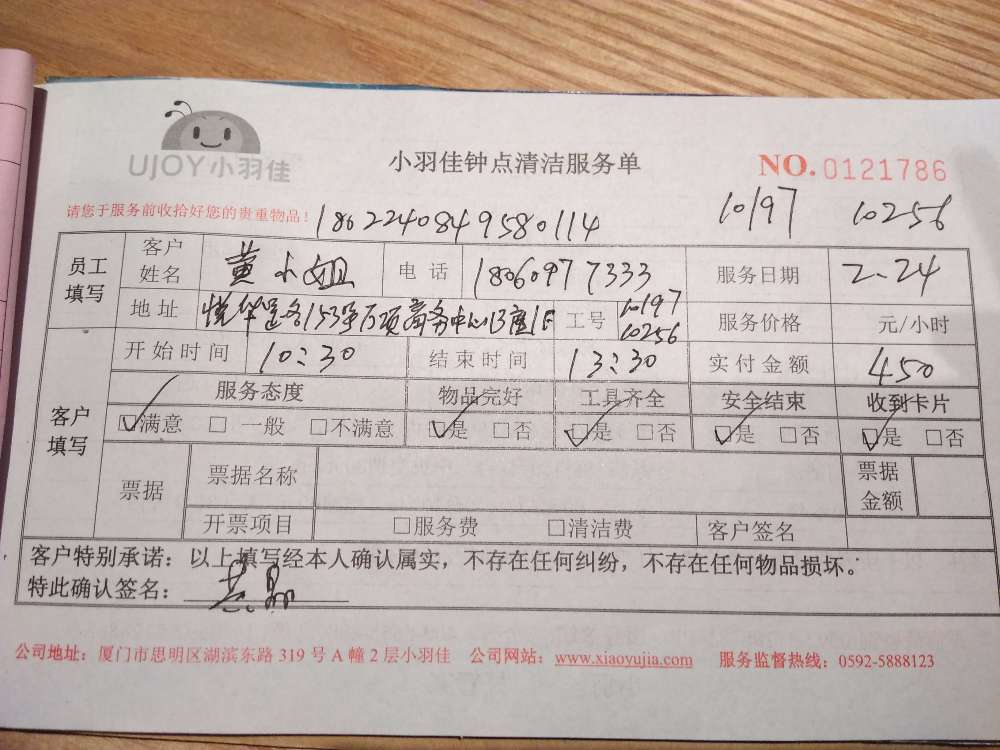 UJOY小羽佳
小羽佳钟点清洁服务单
NO.0121786
请您于服务前收拾好您的贵重物品！
1862240849580114 10197 10256
员工填写 客户姓名 黄小姐 电话 18060977333 服务日期 2.24
地址 悦华路153号万顷商务中心B座1F 工号 10197 10256 服务价格 元/小时
客户填写 开始时间 10:30 结束时间 13:30 实付金额 450
服务态度 物品完好 工具齐全 安全结束 收到卡片
☑满意 □一般 □不满意 ☑是 □否 ☑是 □否 ☑是 □否 ☑是 □否
票据 票据名称 票据金额
开票项目 □服务费 □清洁费 客户签名
客户特别承诺：以上填写经本人确认属实，不存在任何纠纷，不存在任何物品损坏。
特此确认签名：
公司地址：厦门市思明区湖滨东路 319 号 A 幢 2 层小羽佳 公司网站：www.xiaoyujia.com 服务监督热线：0592-5888123